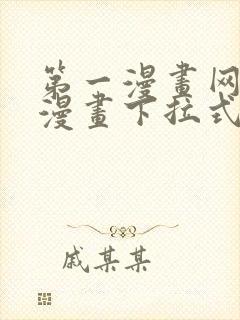 第一漫畫网
漫畫下拉式
戚某某